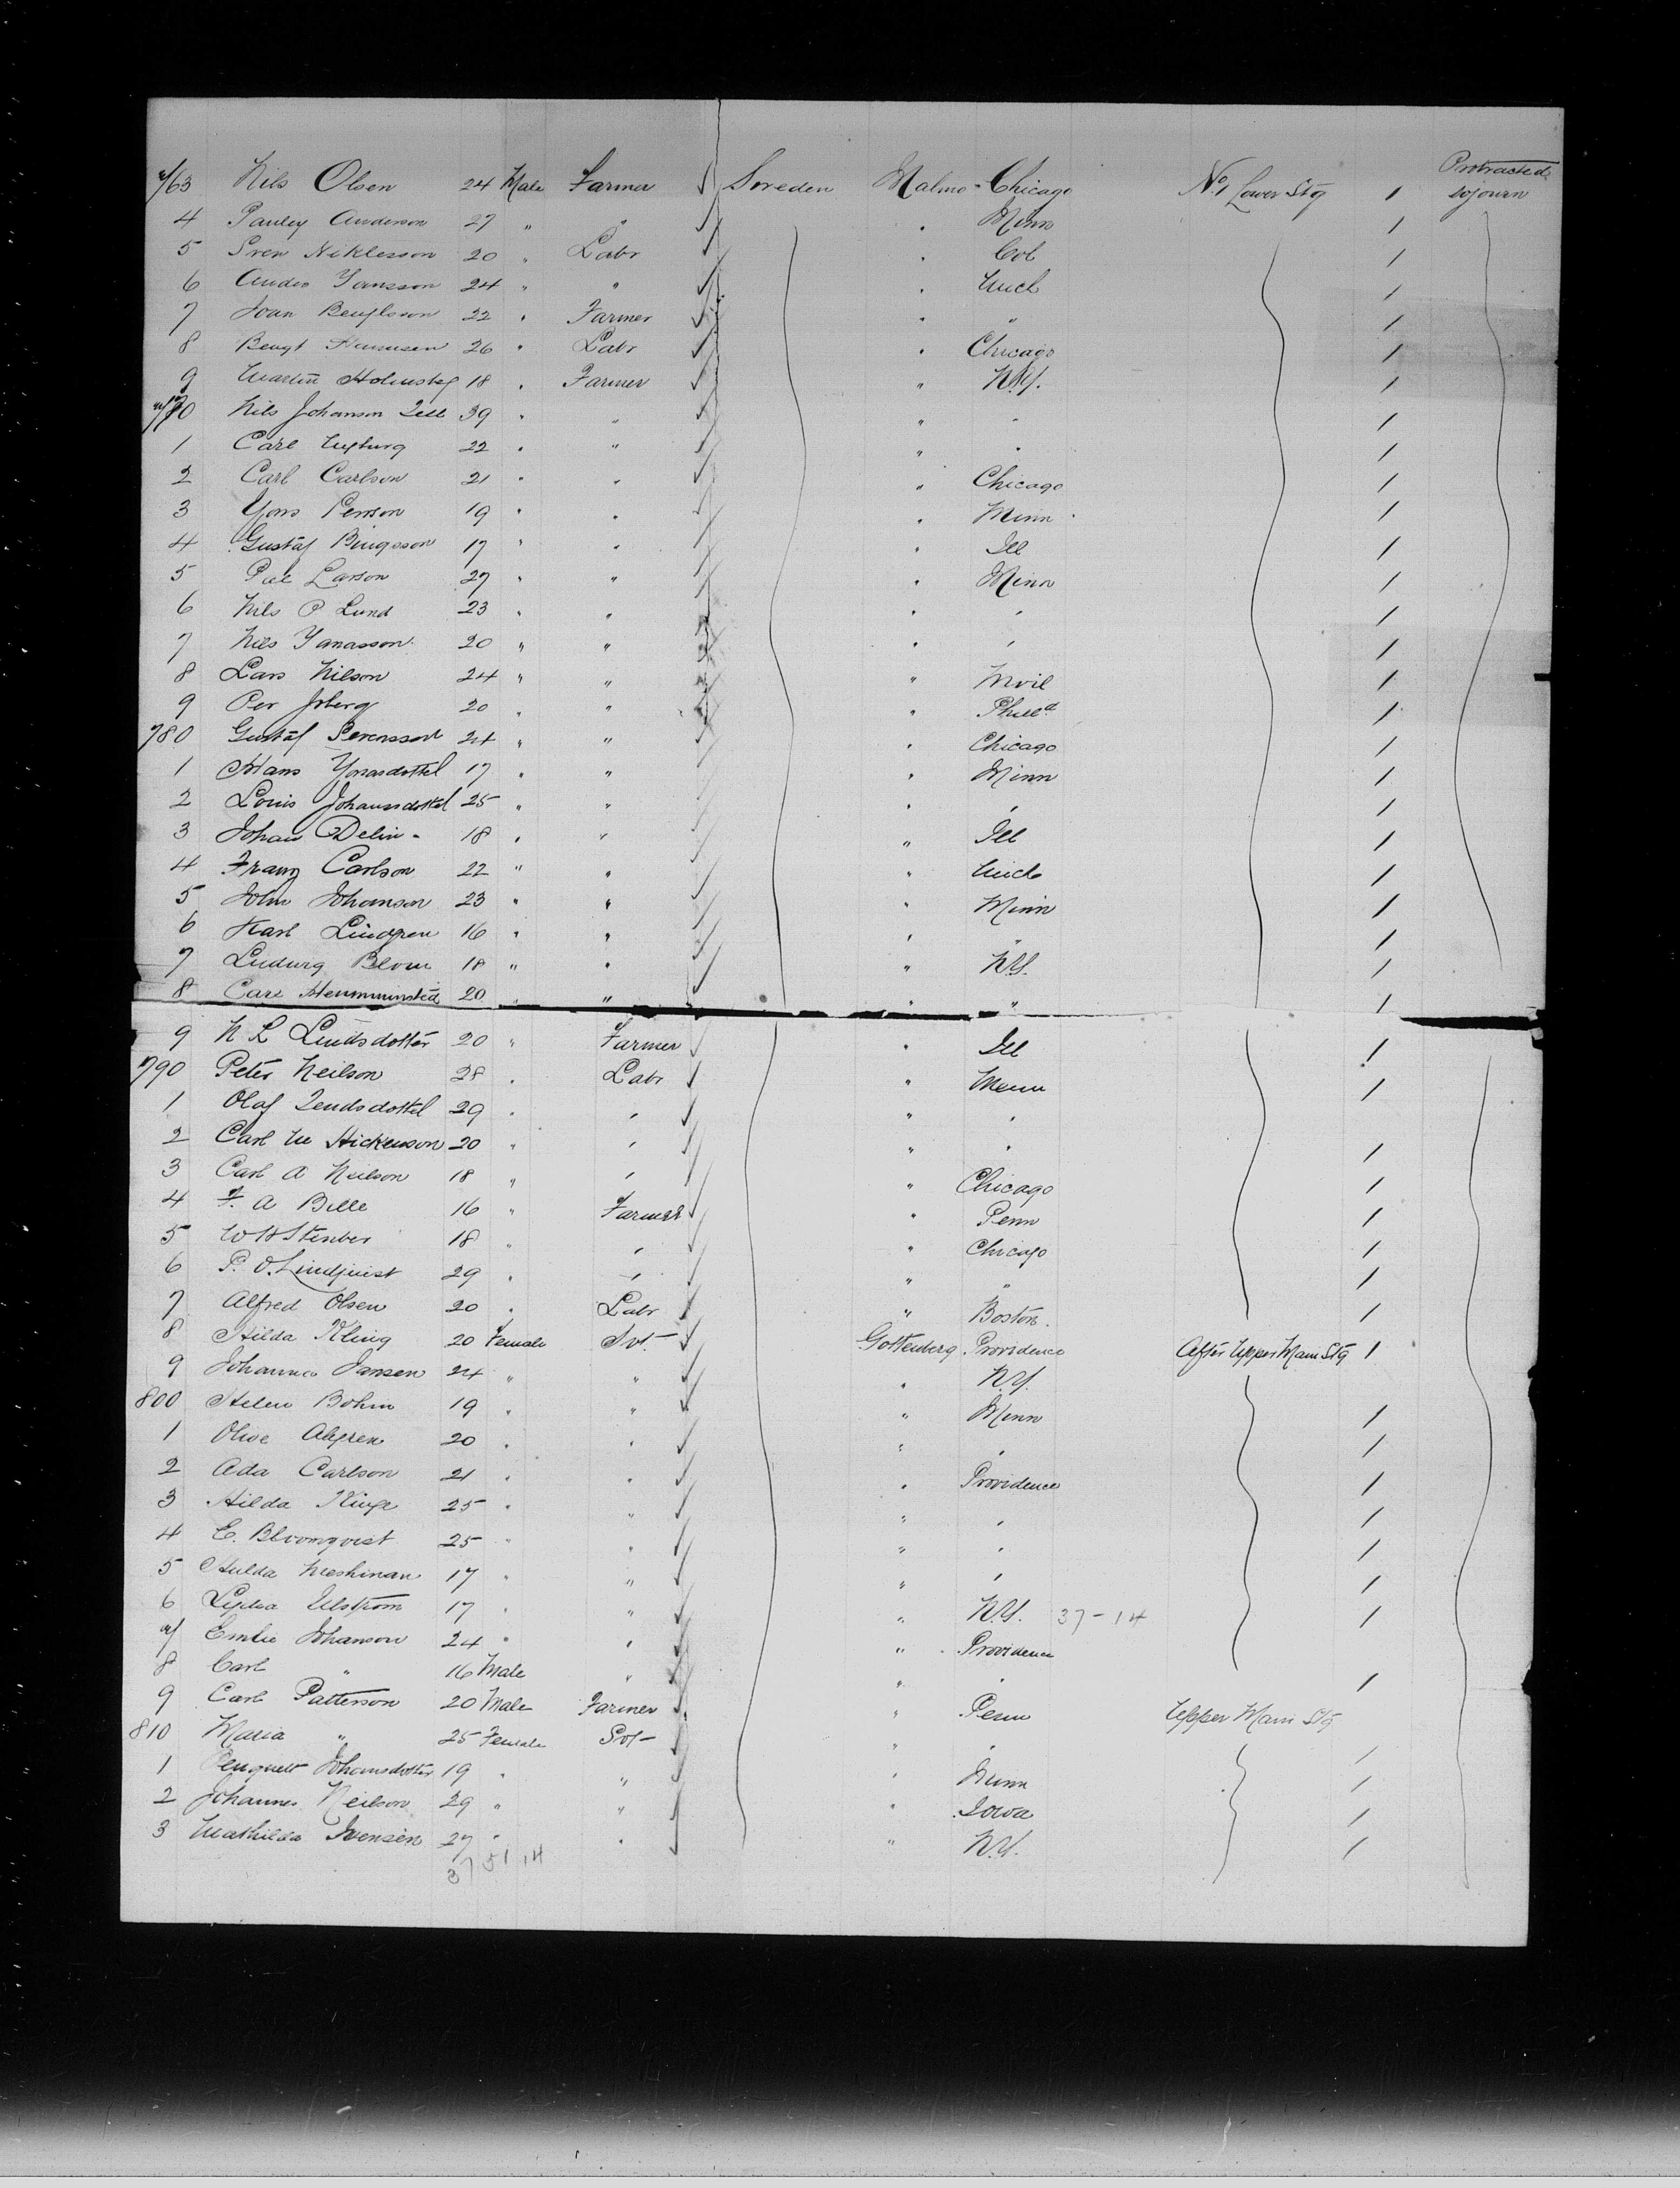 763 Nils Olsen 24 Male Farmer Sweden Malmo Chicago No 1 Lower Stg 1 Protracted sojourn
4 Pauley Anderson 27 " " " Minn 1
5 Sven Niklesson 20 " Labr " Col 1
6 Andro Jansson 24 " " " Mich 1
7 22 " Farmer " " 1
8 Bengt 26 " Labr " Chicago 1
9 Martin 18 " Farmer " N.Y. 1
770 Nils Johanson 39 " " " " 1
1 Carl 22 " " " " 1
2 Carl Carlson 21 " " " Chicago 1
3 Yons Person 19 " " " Minn 1
4 Gustaf 17 " " " Ill 1
5 Larson 27 " " " Minn 1
6 Nils P Lund 23 " " " " 1
7 Nils Yanasson 20 " " " " 1
8 Lars Nilson 24 " " " 1
9 Per 20 " " " Philda 1
780 Gustaf 24 " " " Chicago 1
1 Hans Yonasdottel 17 " " " Minn 1
2 Louis Johannsdottel 25 " " " " 1
3 Johan Delin 18 " " " Ill 1
4 Franz Carlson 22 " " " Mich 1
5 John Johanson 23 " " " Minn 1
6 Karl Lindgren 16 " " " " 1
7 Ludwig Blom 18 " " " N.Y. 1
8 Carl 20 " " " " 1
9 N L Lindsdotter 20 " Farmer " Ill 1
790 Peter Neilson 28 " Labr " Menn 1
1 Olaf 29 " " " "
2 Carl M Hickenson 20 " " " " 1
3 Carl A Neilson 18 " " " Chicago 1
4 F. A Bille 16 " Farmer " Penn 1
5 W H Stenber 18 " " " Chicago 1
6 P. O. Lindquist 29 " " " " 1
7 Alfred Olsen 20 " Labr " Boston 1
8 Hilda Kling 20 Female Svt Gottenberg Providence After Upper Main Stg 1
9 Johanna Jansen 24 " " " N.Y.
800 Helen Bohm 19 " " " Minn 1
1 Olive Algren 20 " " " " 1
2 Ada Carlson 21 " " " Providence 1
3 Hilda 25 " " " " 1
4 E. Blomqvist 25 " " " " 1
5 Hulda 17 " " " " 1
6 17 " " " N.Y. 37-14 1
7 Emlie Johanson 24 " " " Providence
8 Carl " 16 Male " " " 1
9 Carl Patterson 20 Male Farmer " Penn Upper Main Stg
810 Maria " 25 Female Svt " " 1
1 Johansdotter 19 " " " Minn 1
2 Johannes Neilson 29 " " " Iowa 1
3 Mathilda Svensen 27 " " " N.Y. 1
37 51 14